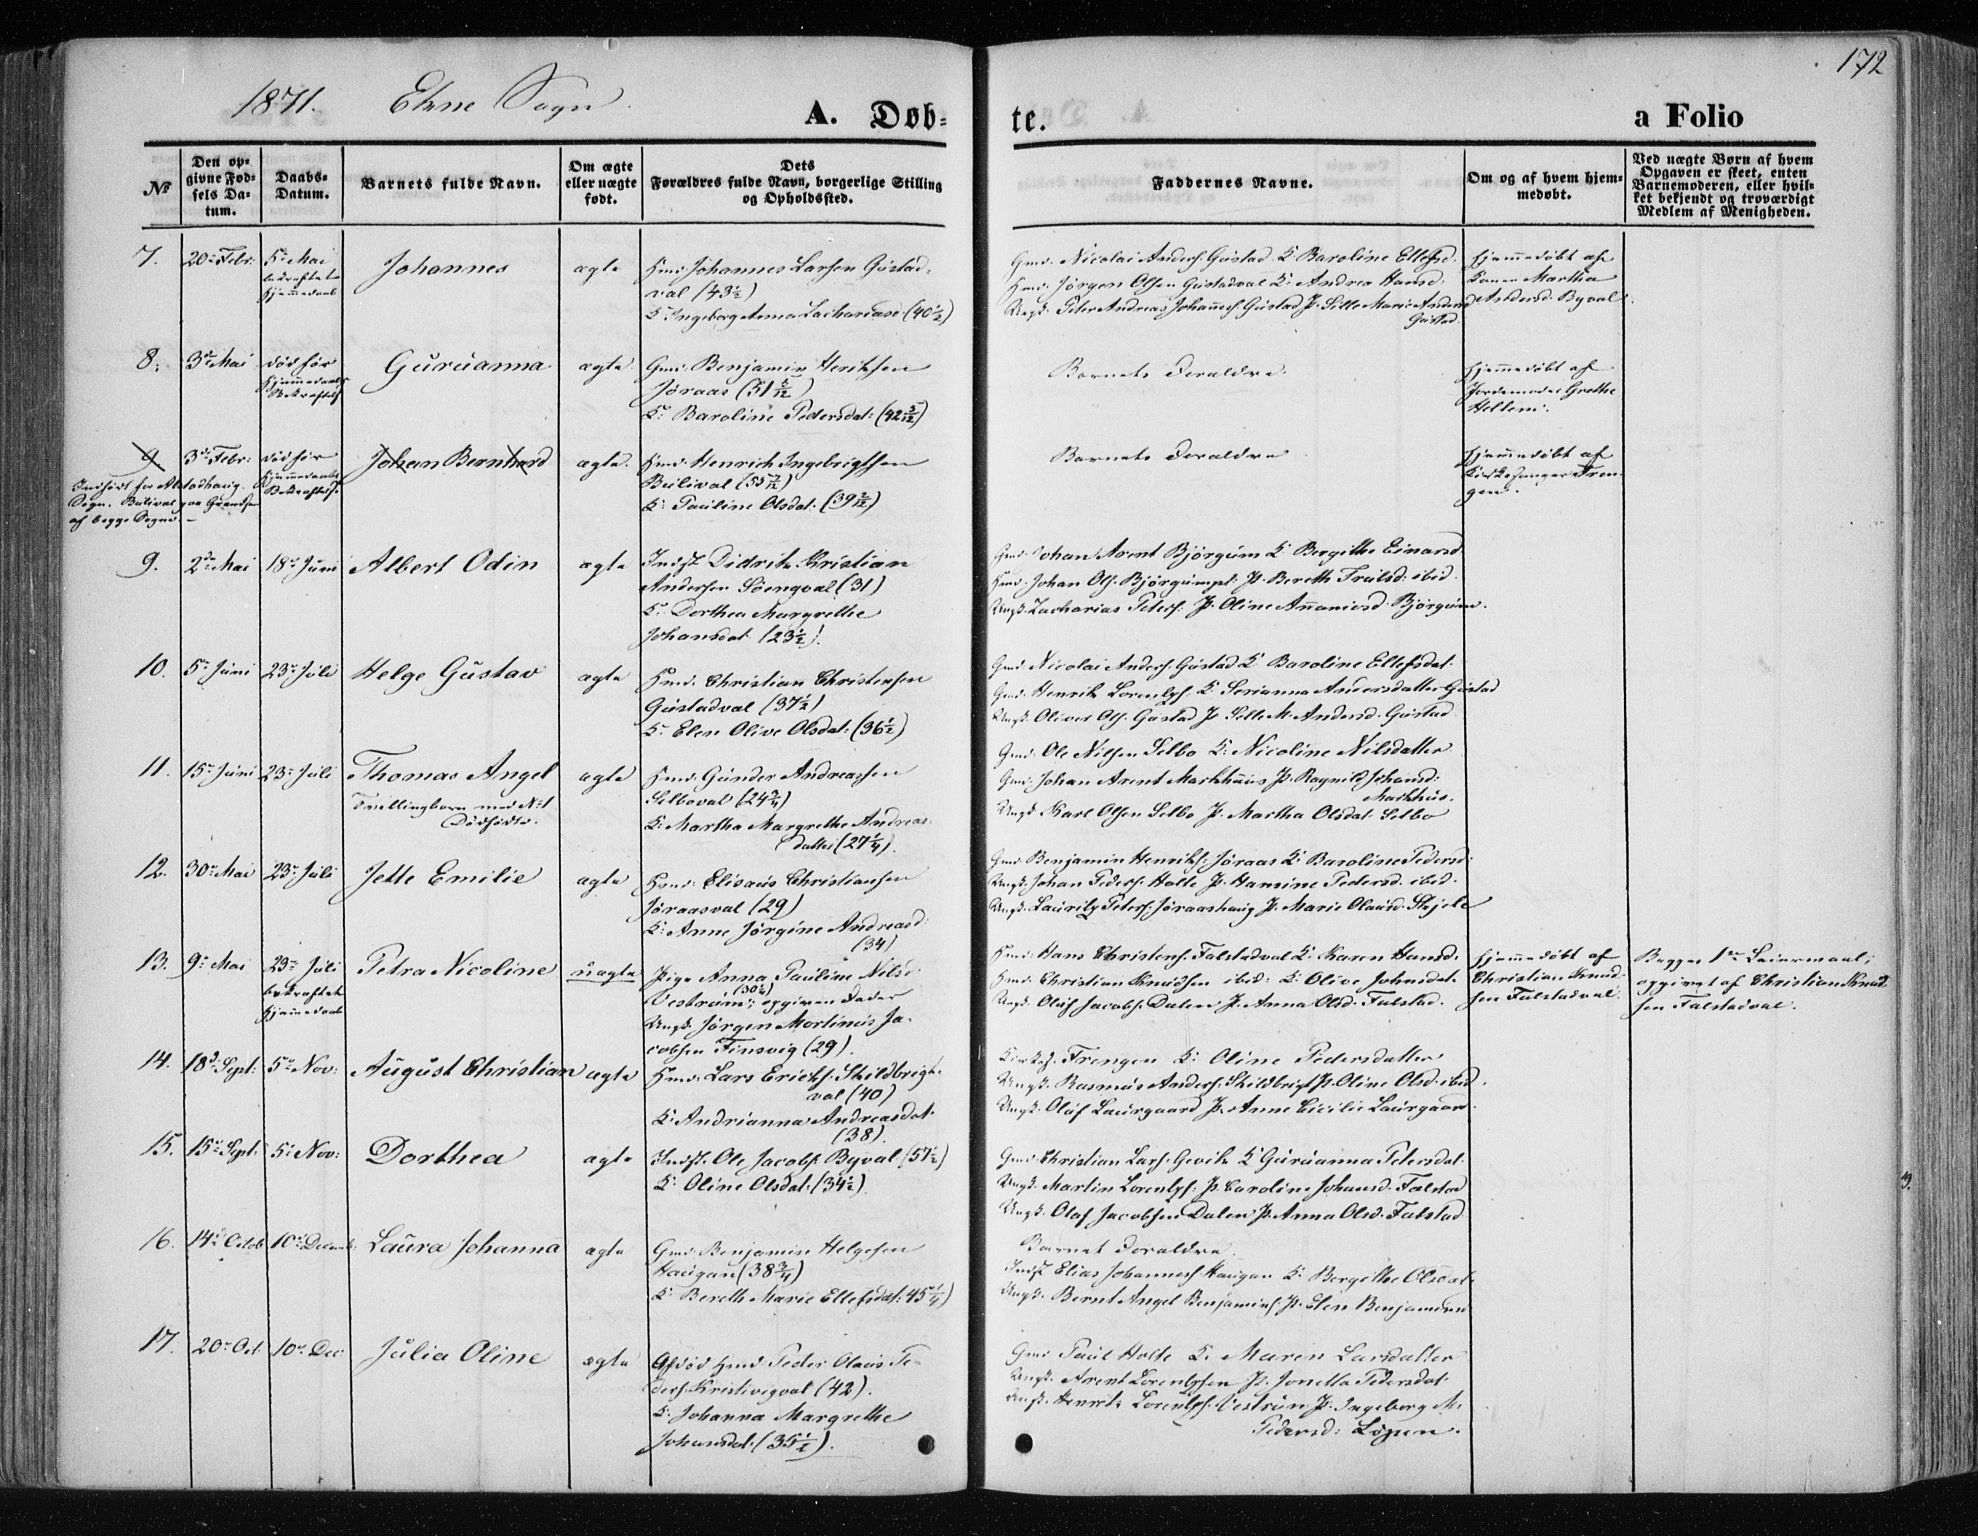 172
1871. Ekne Sogn.
A. Døb-
te.
a Folio
No
Den op-
givne Fød-
sels Da-
tum.
Daabs-
Datum.
Barnets fulde Navn.
Om ægte
eller uægte
født.
Dets
Forældres fulde Navn, borgerlige Stilling
og Opholdssted.
Faddernes Navne.
Om og af hvem hjem-
medøbt.
Ved uægte Børn af hvem
Opgaven er skeet, enten
Barnemoderen, eller hvil-
ket bekjendt og troværdigt
Medlem af Menigheden.
7. 20de Febr: 5te Mai Johannes ægte Hmd: Johannes Larsen Gustad-
bekræftet
Hjemmedaab
val (43 1/2)
K: Ingeborg Anna Zachariasd (40 1/2)
Gmd: Nicolai Anders: Gustad K: Baroline Ellefsd.
Hmd: Jørgen Olsen Gustadval K: Andrea Hansd.
Ungk: Peter Andreas Johannes: Gustad P: Sille Marie Andersd
Gustad.
Hjemmedøbt af
Konen Martha
Andersd. Byval.
8. 3die Mai død før Guruanna ægte Gmd: Benjamin Henriksen
Hjemmedaabs
Bekræftelse
Jøraas (51 5/12)
K: Baroline Pedersdat: (42 5/12)
Barnets Forældre.
Hjemmedøbt af
Jordemoder Grethe
Hellem.
9 3die Febr: død før Johan Bernhard ægte. Hmd: Henrich Ingebrigtsen
Hjemmedaabs
Bekræftelse
Indført for Alstadhaug
Sogn. Bulival paa Grændsen
af begge Sogne. -
Bulival (55 7/12)
K: Pauline Olsdat: (39 2/12)
Barnets Forældre
Hjemmedøbt af
Kirkesanger Fren-
gen.
9. 2den Mai 18de Juni Albert Odin ægte Indst. Didrik Kristian
Andersen Søengval (31)
K: Dorthea Margrethe
Johansdat. (23 1/2).
Gmd: Johan Arent Bjørgum K: Bergithe Einarsd.
Hmd: Johan Ols: Bjørgumpl: P: Bereth Trulsd: ibid.
Ungk: Zacharias Peters: P: Oline Ananiasd. Bjørgum.
10. 5te Juni 23de Juli Helge Gustav ægte Hmd: Christian Christensen
Gustadval (37 1/2)
K: Elen Olive Olsdat: (36 1/2)
Gmd: Nicolai Anders: Gustad K: Baroline Ellefsdat.
Gmd: Henrik Lorentss: K: Serianna Andersdatter Gustad
Ungk: Oliver Ols: Gustad P: Sille M. Andersd. Gustad
11. 15de Juni 23de Juli Thomas Angel ægte Hmd: Gunder Andreassen
Tvillingbarn med No 1
Dødfødte.
Selboval (24 3/4)
K: Martha Margrethe Andreas-
datter (27 1/4).
Gmd: Ole Nilsen Selbo K: Nicoline Nilsdatter
Gmd: Johan Arent Markhus P: Ragnild Johansd:
Markhus.
Ungk. Karl Olsen Selbo P: Martha Olsdat. Selbo
12. 30te Mai 23de Juli Jette Emilie ægte Hmd: Elisæus Christiansen
Jøraasval (29)
K: Anne Jørgine Andreasd:
(34)
Gmd: Benjamin Henriks: Jøraas K: Baroline Pedersd:
Ungk: Johan Peders: Holte P: Hansine Pedersd. ibid.
Ungk: Lauritz Peters: Jøraashaug P: Marie Olausd. Skjele
13. 9de Mai 23de Juli Petra Nicoline uægte Pige Anna Pauline Nilsd.
bekræftet
Hjemmedaab
(30 1/2)
Vestrum; opgiven Fader
Ungk. Jørgen Mortinus Ja-
cobsen Finsvig (29).
Hmd: Hans Christens: Falstadval K: Karen Hansd.
Hmd: Christian Knudsen ibid: K: Olive Johnsdat.
Ungk: Oluf Jacobs: Dalen P: Anna Olsd. Falstad.
Hjemmedøbt af
Christian Knud-
sen Falstadval.
Begges 1ste Leiermaal;
opgivet af Christian Knud-
sen Falstadval.
14. 18de Sept: 5te Nov: August Christian ægte Hmd: Lars Ericks: Skildbrigt-
val (40)
K: Andrianna Andreasdat.
(38).
Kirkes: Frengen K: Oline Pedersdatter
Ungk. Rasmus Anders: Skildbrigt P: Oline Olsd. ibid.
Ungk. Oluf Laurgaard P: Anne Cicilie Laurgaard
15. 15de Sept: 5te Nov: Dorthea ægte Indst. Ole Jacobs: Byval (57 1/2)
K: Oline Olsdat: (34 1/2)
Gmd: Christian Lars: Gevik K: Guruanna Petersdat.
Ungk. Martin Lorentss: P: Caroline Johansd. Falstad
Ungk. Olaf Jacobsen Dalen P: Anna Olsd. Falstad
16. 14de Octob 10de Decemb. Laura Johanna ægte Gmd: Benjamin Helgesen
Haugan (38 3/4)
K: Bereth Marie Ellefsdat: 45 1/4)
Barnets Forældre.
Indst. Elias Johannes: Haugan K: Bergithe Olsdat.
Ungk. Bernt Angel Benjamins: P: Elen Benjaminsd
17. 20de Oct 10de Dec: Julia Oline ægte Afdød Hmd: Peder Olaus Pe-
ders: Kristivigval (42).
K: Johanna Margrethe
Johansdat: (35 1/2).
Gmd: Paul Holte K: Maren Larsdatter
Ungk. Arent Lorentssen P: Jonetta Pedersdat.
Ungk. Henrik Lorentss: Vestrum P: Ingeborg M.
Pedersd: Løgsen.